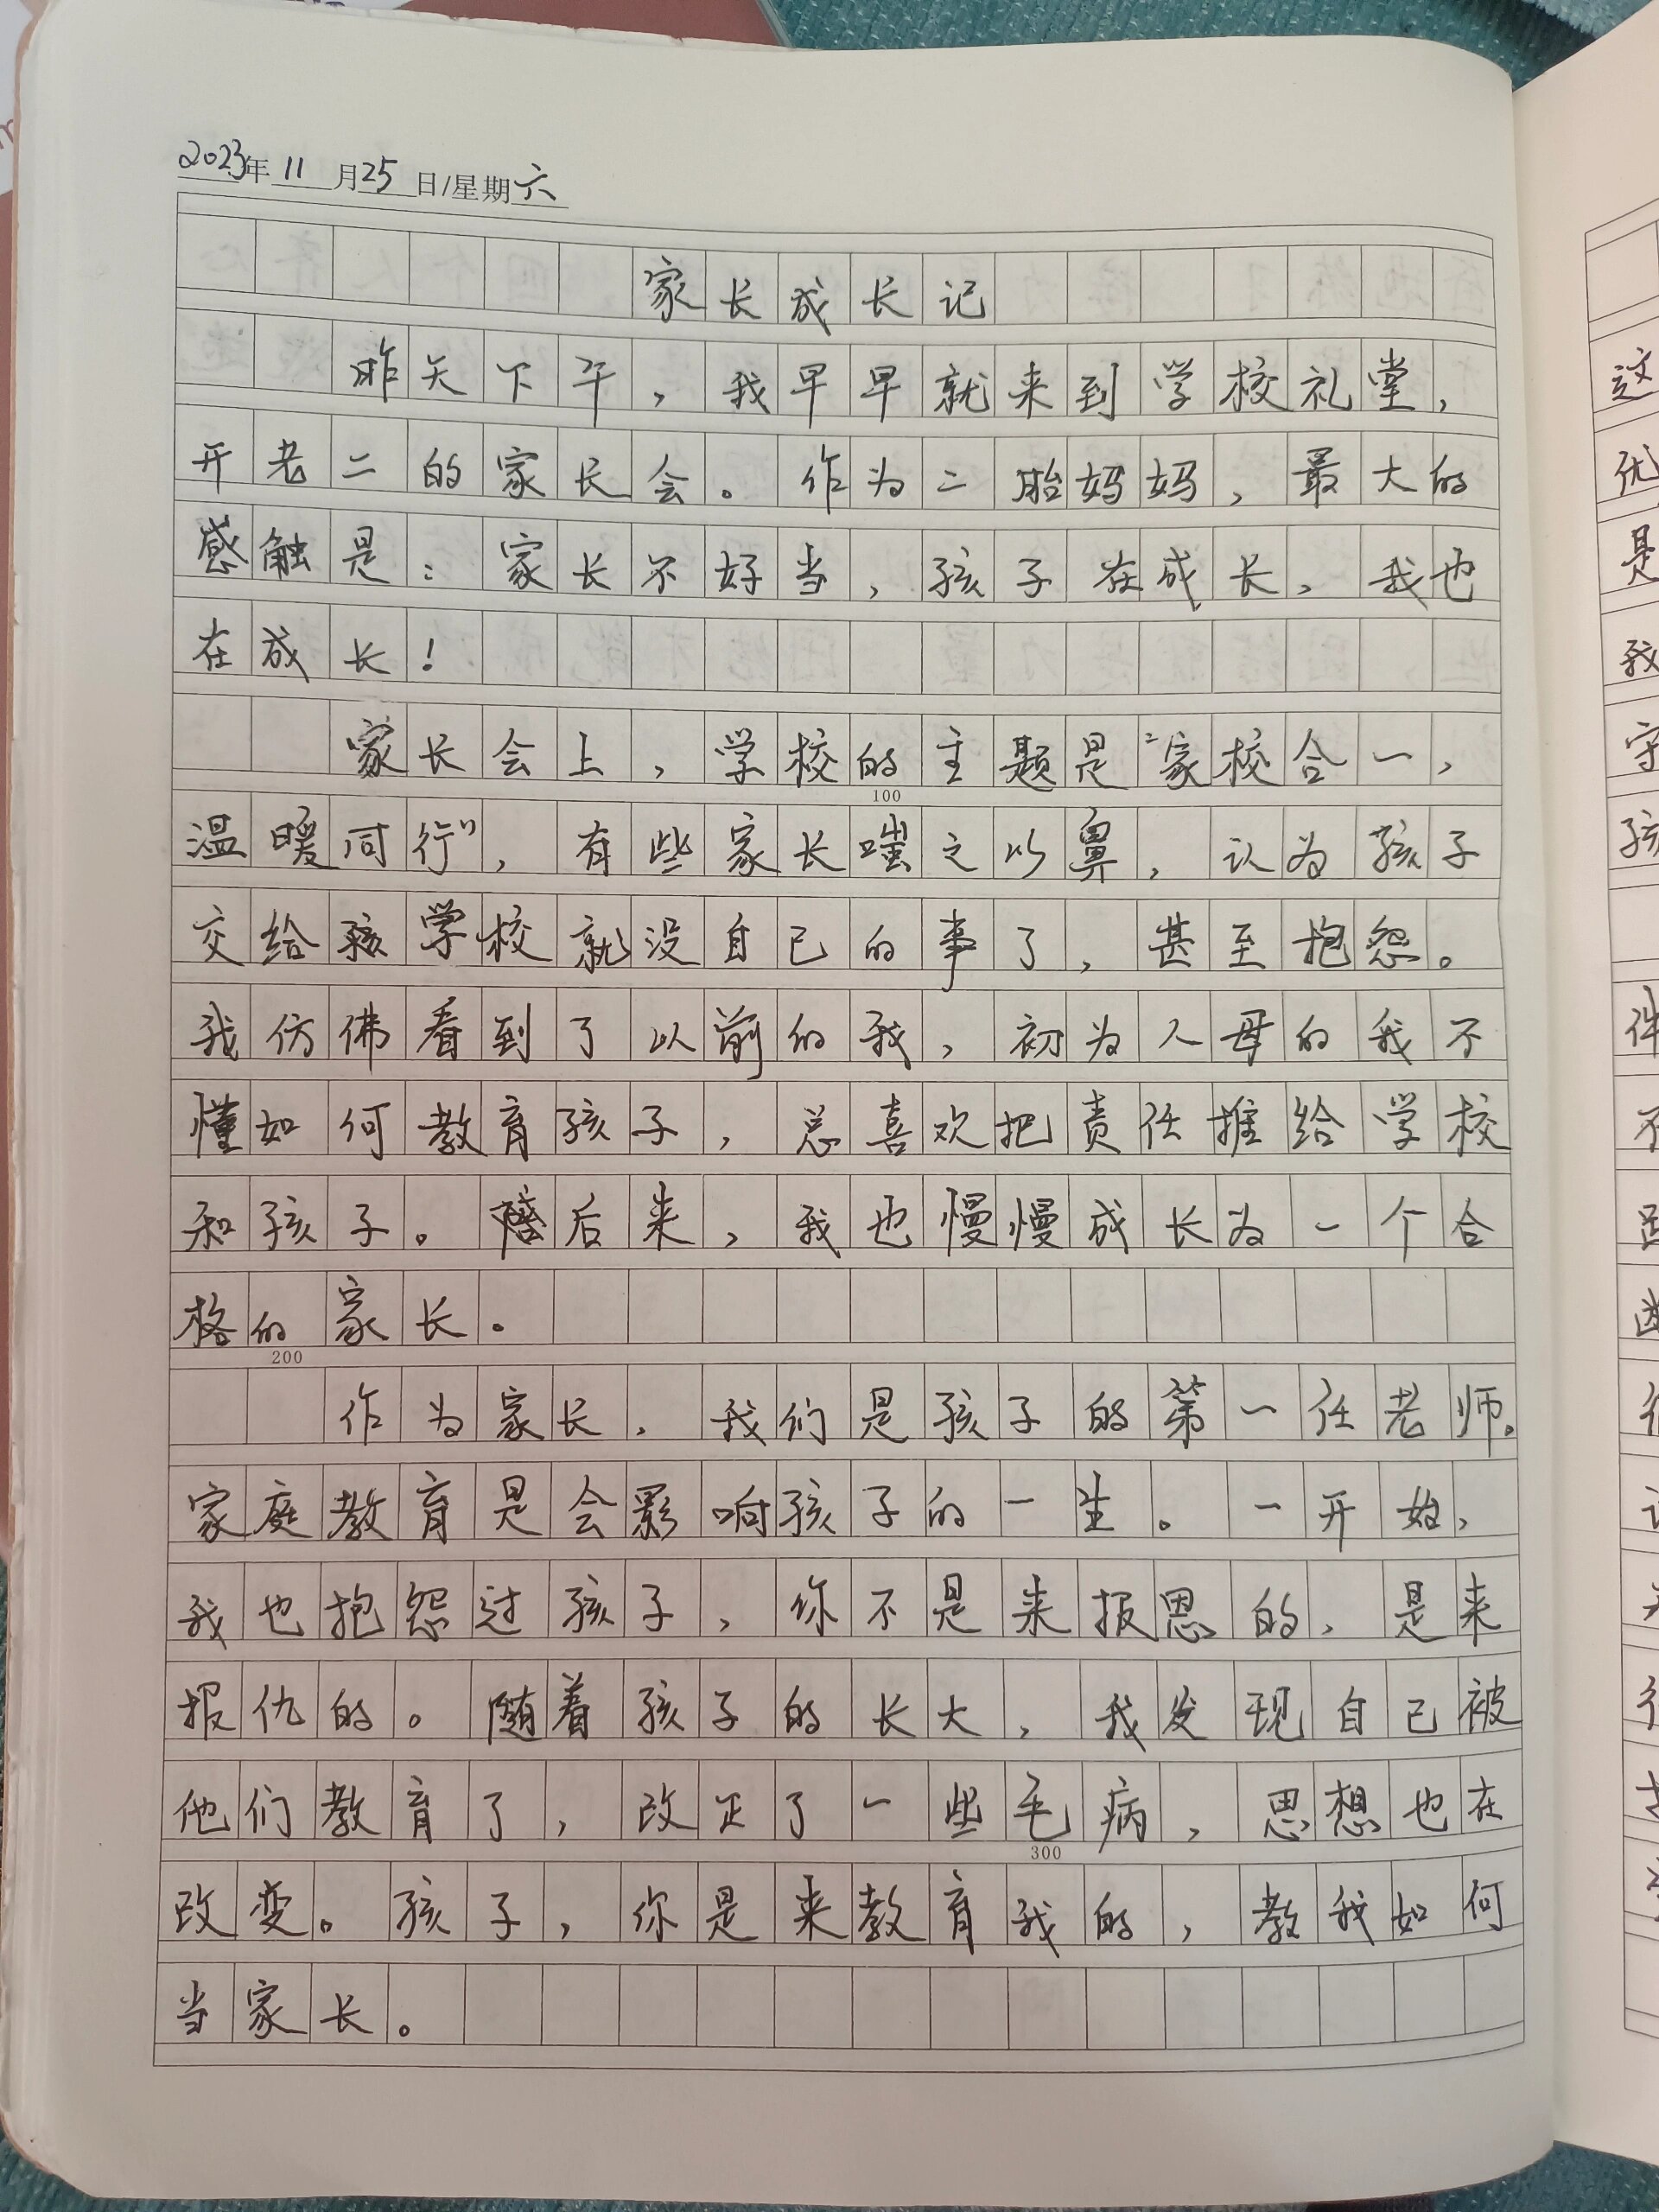 2023年11月25日/星期六
家长成长记
昨天下午，我早早就来到学校礼堂，
开老二的家长会。作为二胎妈妈，最大的
感触是：家长不好当，孩子在成长，我也
在成长！
家长会上，学校的主题是“家校合一，
100
温暖同行”，有些家长嗤之以鼻，认为孩子
交给孩学校就没自己的事了，甚至抱怨。
我仿佛看到了以前的我，初为人母的我不
懂如何教育孩子，总喜欢把责任推给学校
和孩子。后来，我也慢慢成长为一个合
格的家长。
200
作为家长，我们是孩子的第一任老师。
家庭教育是会影响孩子的一生。一开始，
我也抱怨过孩子，你不是来报恩的，是来
报仇的。随着孩子的长大，我发现自己被
他们教育了，改正了一些毛病，思想也在
300
改变。孩子，你是来教育我的，教我如何
当家长。
这
优
是
我
守
孩
件
不